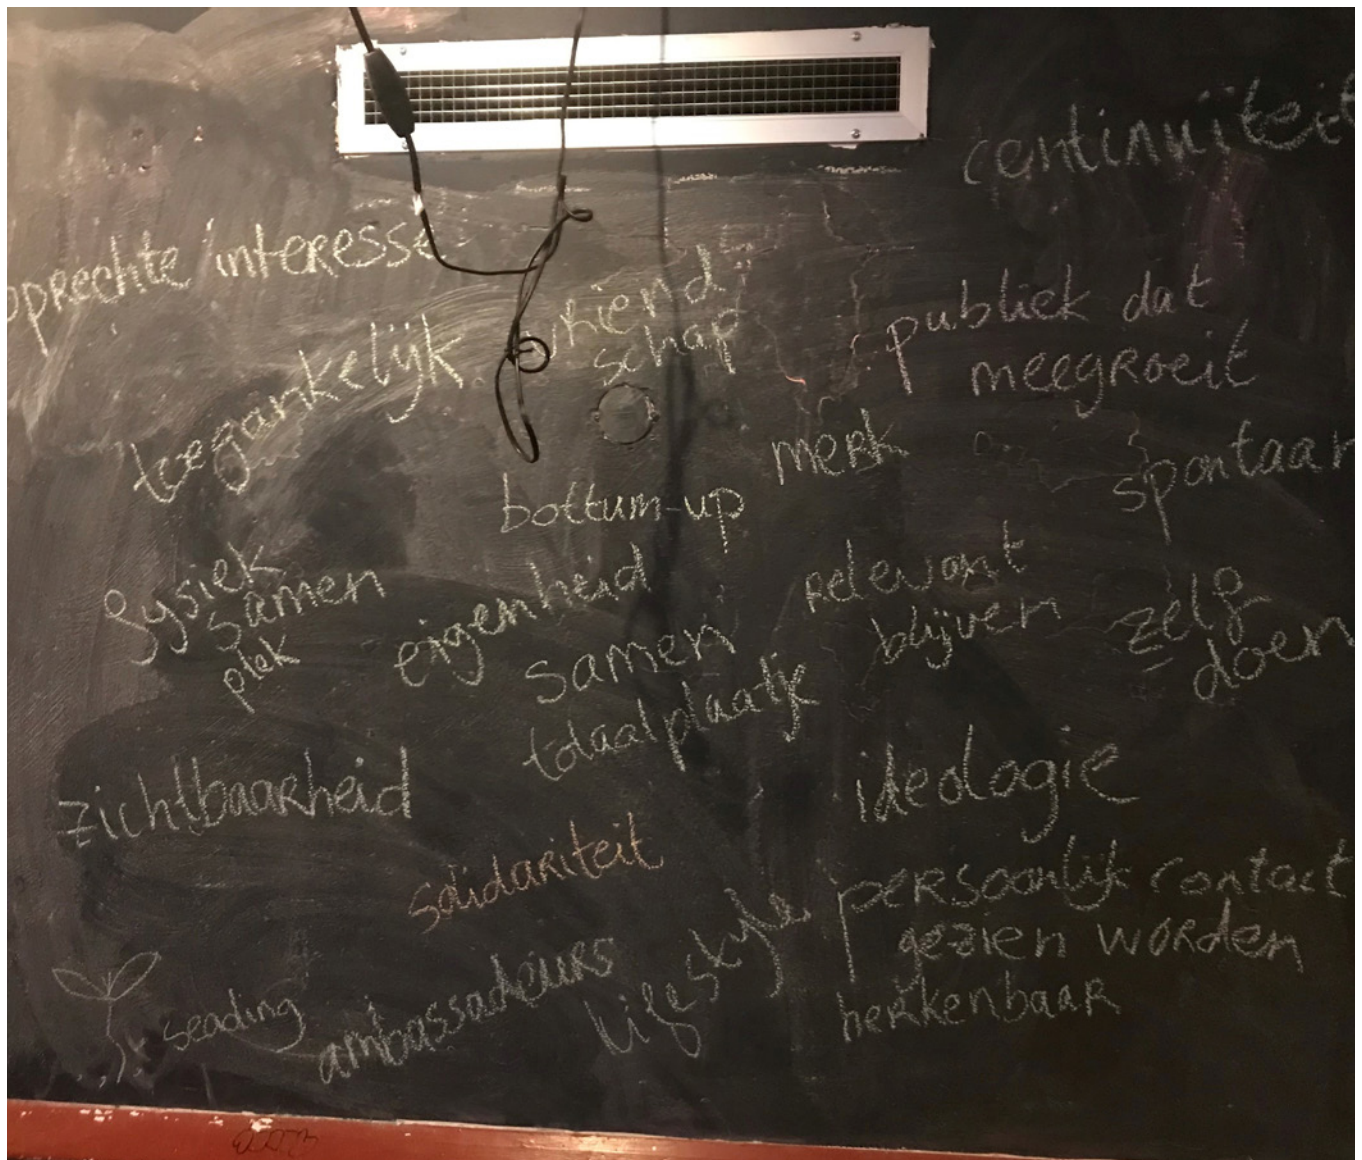 continuïteit
oprechte interesse
vriend
schap
publiek dat
meegroeit
toegankelijk
merk
spontaan
bottum-up
fysiek
samen
plek
eigenheid
relevant
blijven
zelf
doen
samen
totaalplaatje
zichtbaarheid
ideologie
solidariteit
persoonlijk contact
gezien worden
herkenbaar
lifestyle
ambassadeurs
seading